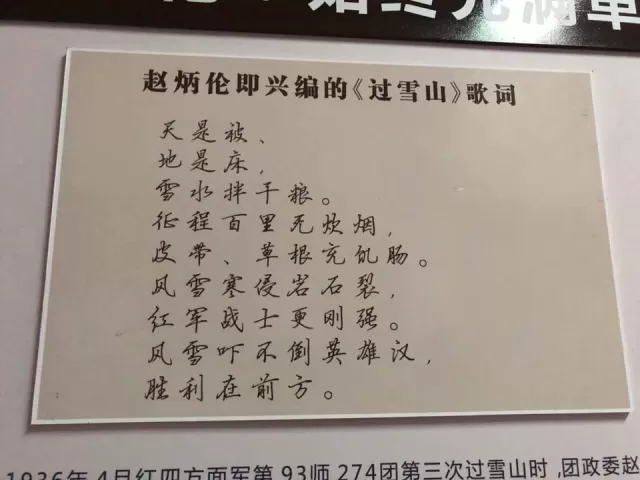 始终充满革
赵炳伦即兴编的《过雪山》歌词
天是被、
地是床，
雪水拌干粮。
征程百里无炊烟，
皮带、草根充饥肠。
风雪寒侵岩石裂，
红军战士更刚强。
风雪吓不倒英雄汉，
胜利在前方。
1936年4月红四方面军第93师274团第三次过雪山时,团政委赵